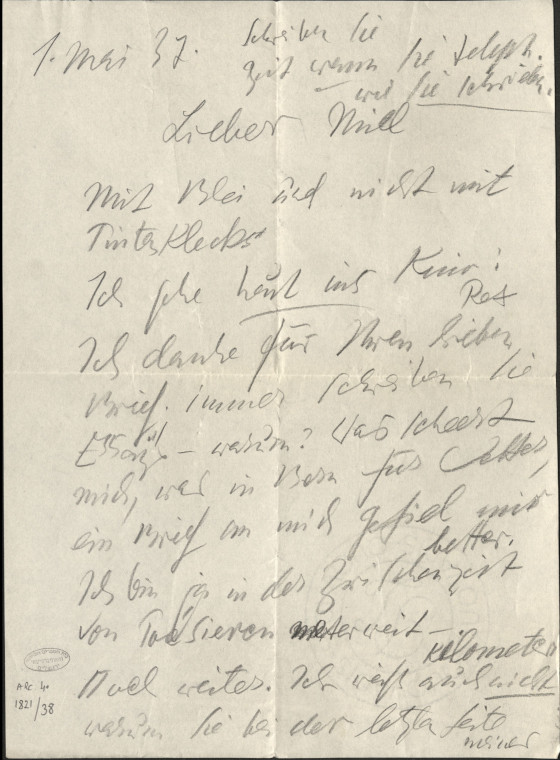 1. Mai 37.
Schreiben Sie
Zeit wann Sie teleph.
wie Sie schrieben.
Lieber Nill
Mit Blei und nicht mit
Tintenklecks
Ich gehe heut ins Kino:
Rex
Ich danke für Ihren lieben
Brief. immer schreiben Sie
– warum? Was scheert
mich, was in Bern für
ein Brief an mich gefiel mir
better.
Ich bin ja in der Zwischenzeit
von weit –
Kilometer
Noel weiter. Ich weiß auch nicht
warum Sie bei der letzten Seite
meiner
ARC 4o
1821/38